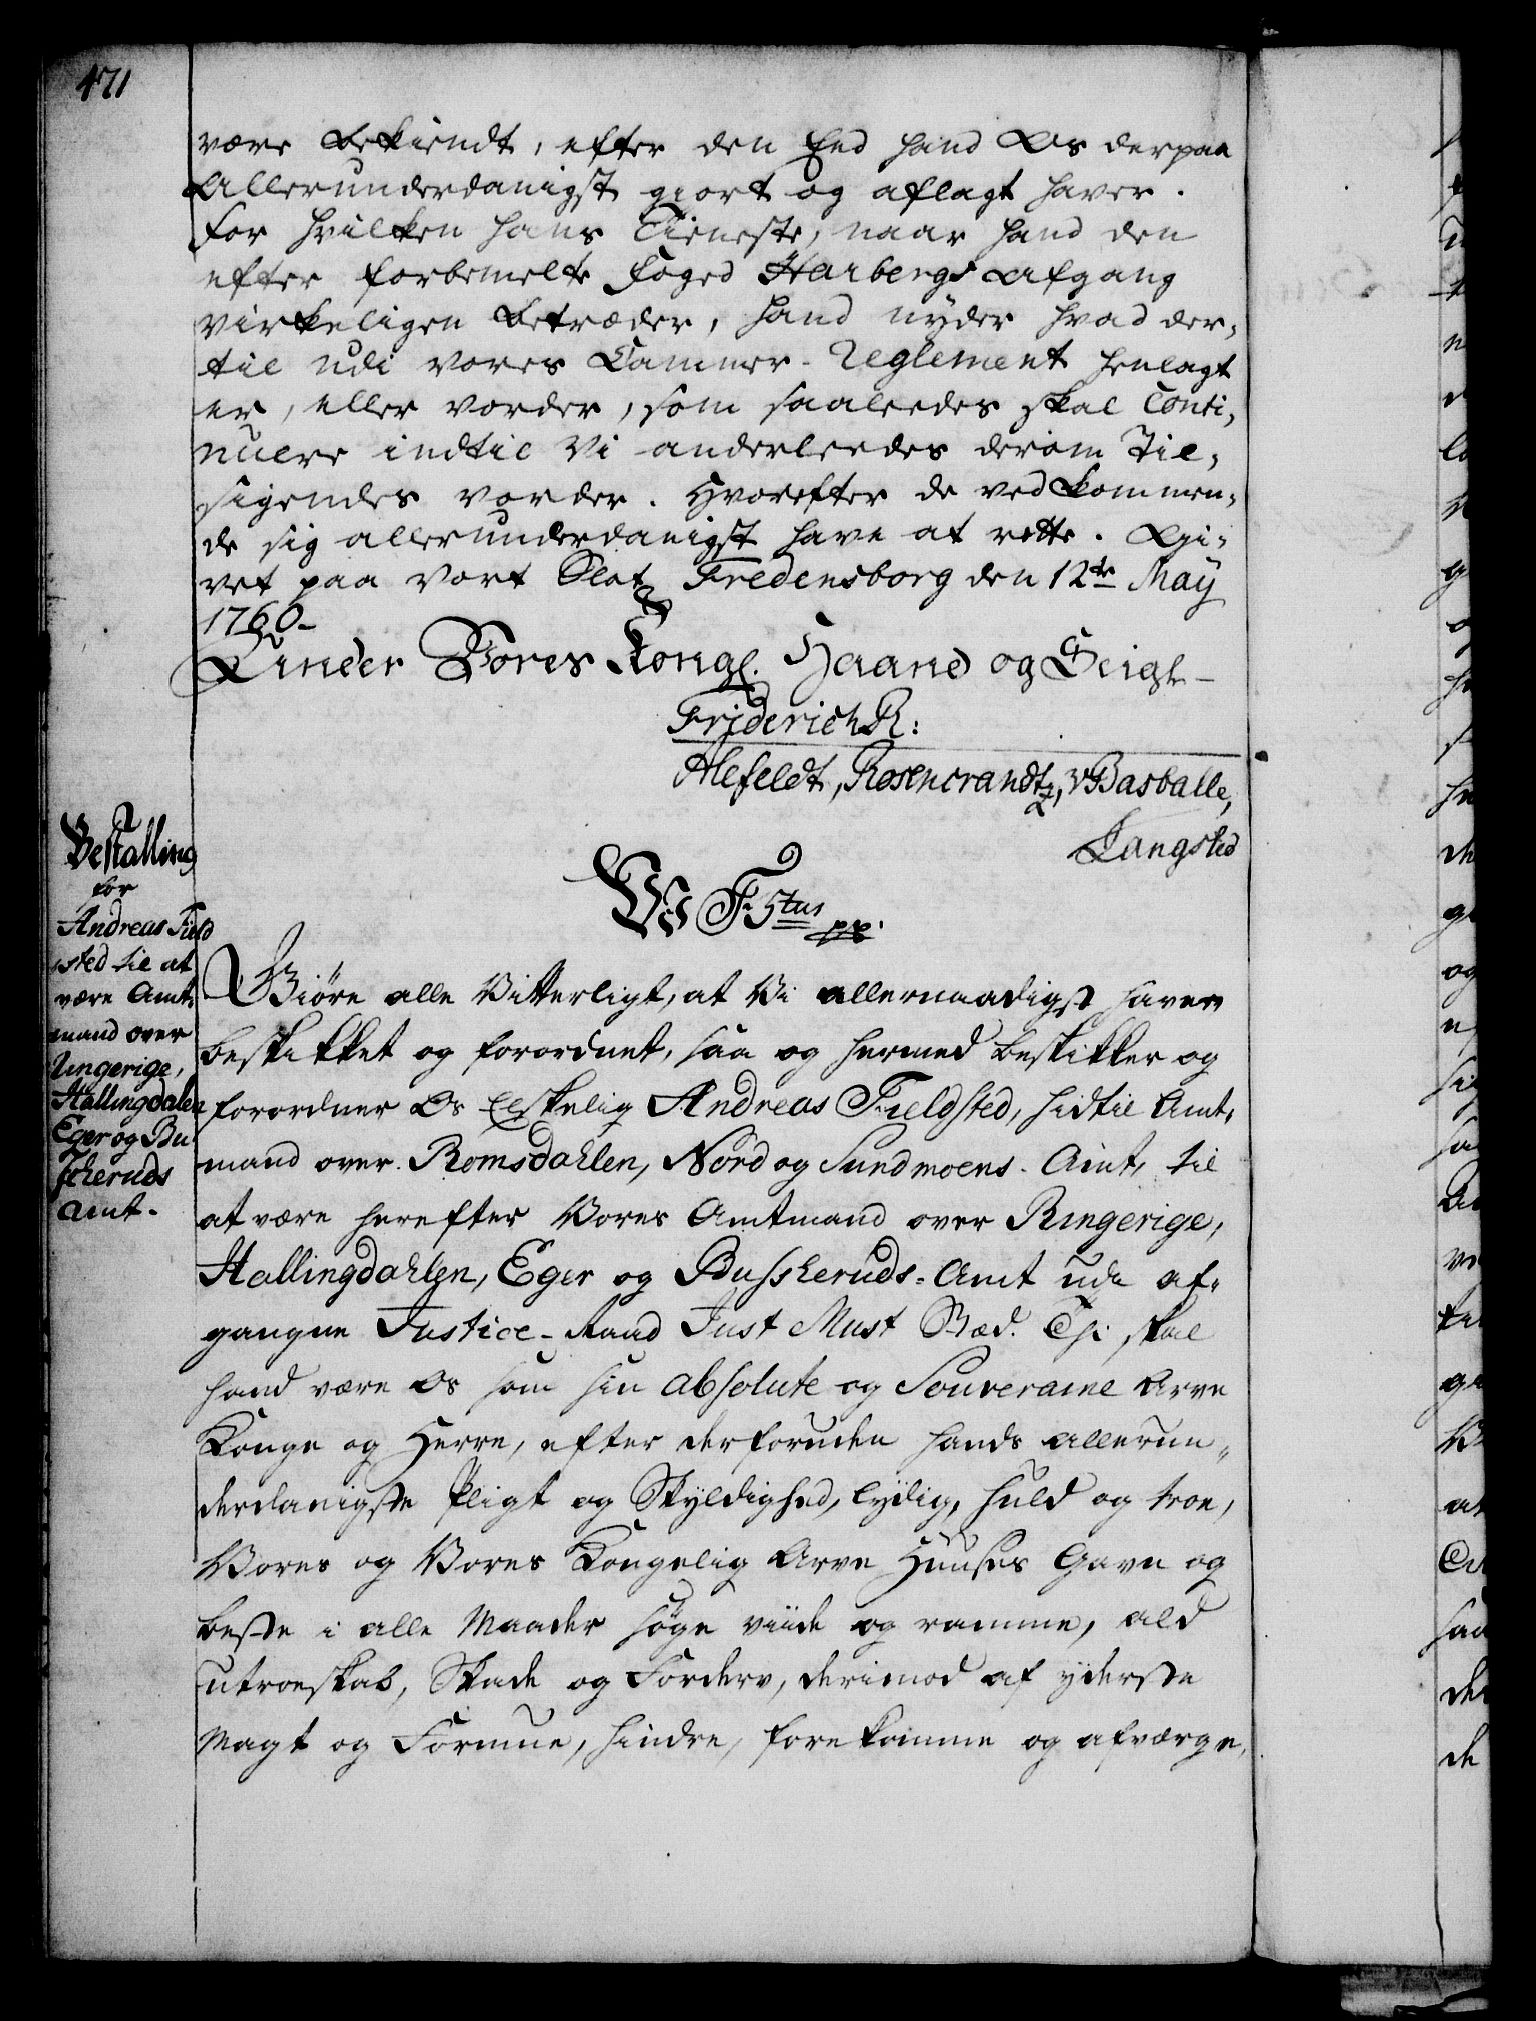 471
være bekiendt, efter den Eed hand Os derpaa
Allerunderdanigst giort og aflagt haver.
For hvilken hans Tieneste, naar hand den
efter forbemelte Foged Harbergs Afgang
virkeligen betræder, hand nyder hvad der,
til udi vores Cammer-Reglement henlagt
er, eller vorder, som saaledes skal Conti,
nuere indtil Vi anderleedes derom Til,
sigendes vorder. Hvorefter de vedkommen,
de sig allerunderdanigst have at rette. Gi,
vet paa Vort Slot Fredensborg den 12te May
1760-
Under Vores Kongl. Haand og Seigl-
Friderich R:
Alefeldt, Rosencrandtz, v Basballe,
Langsted
Bestalling
for
Andreas Field
sted til at
være Amt,
mand over
Ringerige,
Hallingdalen
Eger og Bu
scheruds
Amt.
W F 5tus pp.
Giöre alle Vitterligt, at Vi allernaadigst haver
beskikket og forordnet, saa og hermed beskikker og
forordner Os Elskelig Andreas Fieldsted, hidtil Amt,
mand over Romsdahlen, Nord og Sundmoers Amt, til
at være herefter Vores Amtmand over Ringerige,
Hallingdahlen, Eger og Buscheruds-Amt udi af,
gangne Justice-Raad Just Must Stæd. Thi skal
hand være Os som sin absolute og Souveraine Arve
Konge og Herre, efter derforuden hands allerun,
derdanigste Pligt og Skyldighed, lydig, huld og troe,
Vores og Vores Kongelig Arve Huuses Gavn og
beste i alle Maader søge viide og ramme, ald
utroeskab, Skade og Forderv, derimod af yderste
Magt og Formue, hindre, forekomme og afværge,